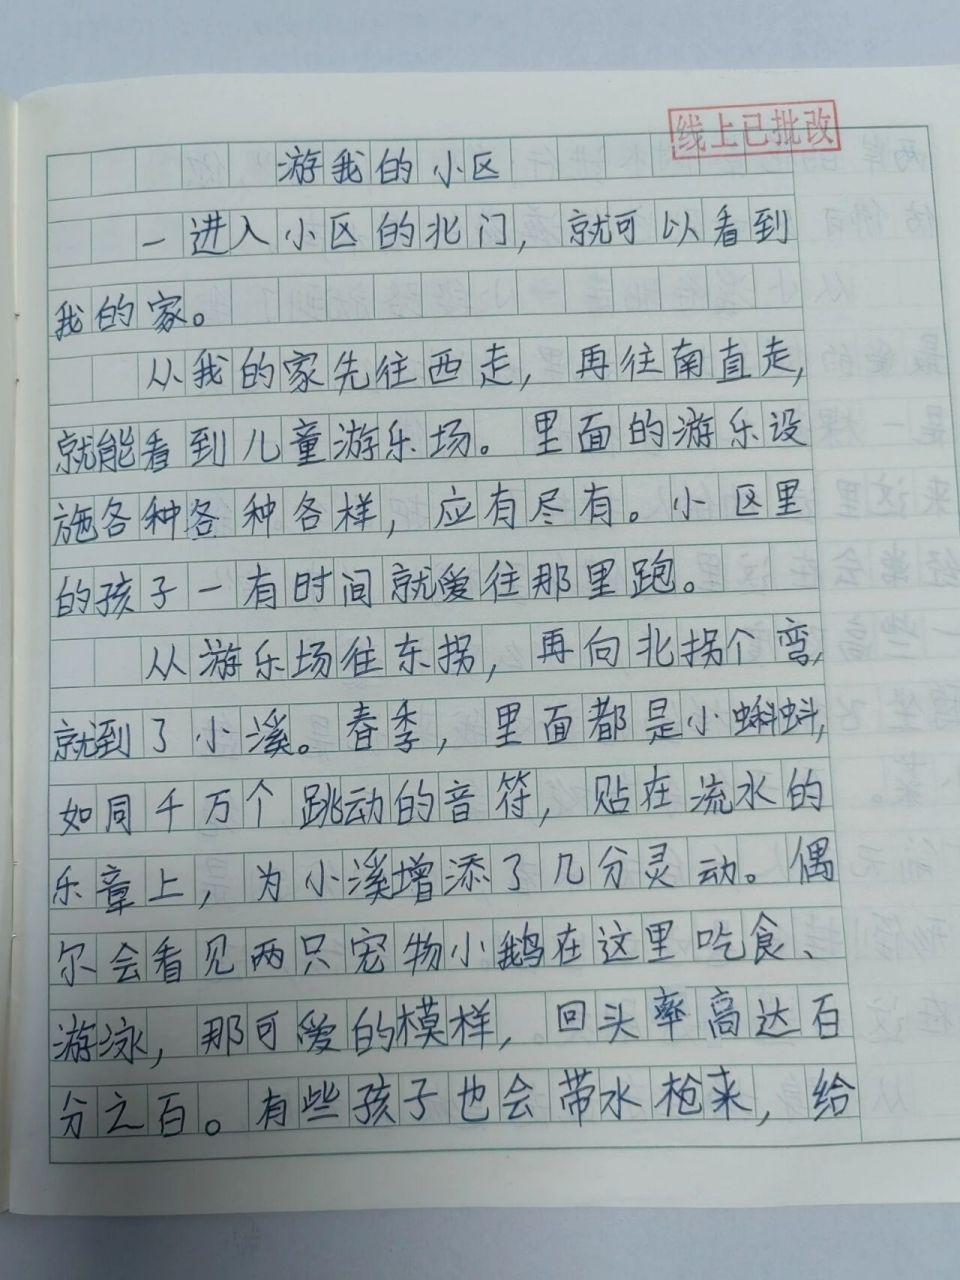 线上已批改
游我的小区
一进入小区的北门，就可以看到
我的家。
从我的家先往西走，再往南直走，
就能看到儿童游乐场。里面的游乐设
施各种各种各样，应有尽有。小区里
的孩子一有时间就爱往那里跑。
从游乐场往东拐，再向北拐个弯，
就到了小溪。春季，里面都是小蝌蚪，
如同千万个跳动的音符，贴在流水的
乐章上，为小溪增添了几分灵动。偶
尔会看见两只宠物小鹅在这里吃食、
游泳，那可爱的模样，回头率高达百
分之百。有些孩子也会带水枪来，给